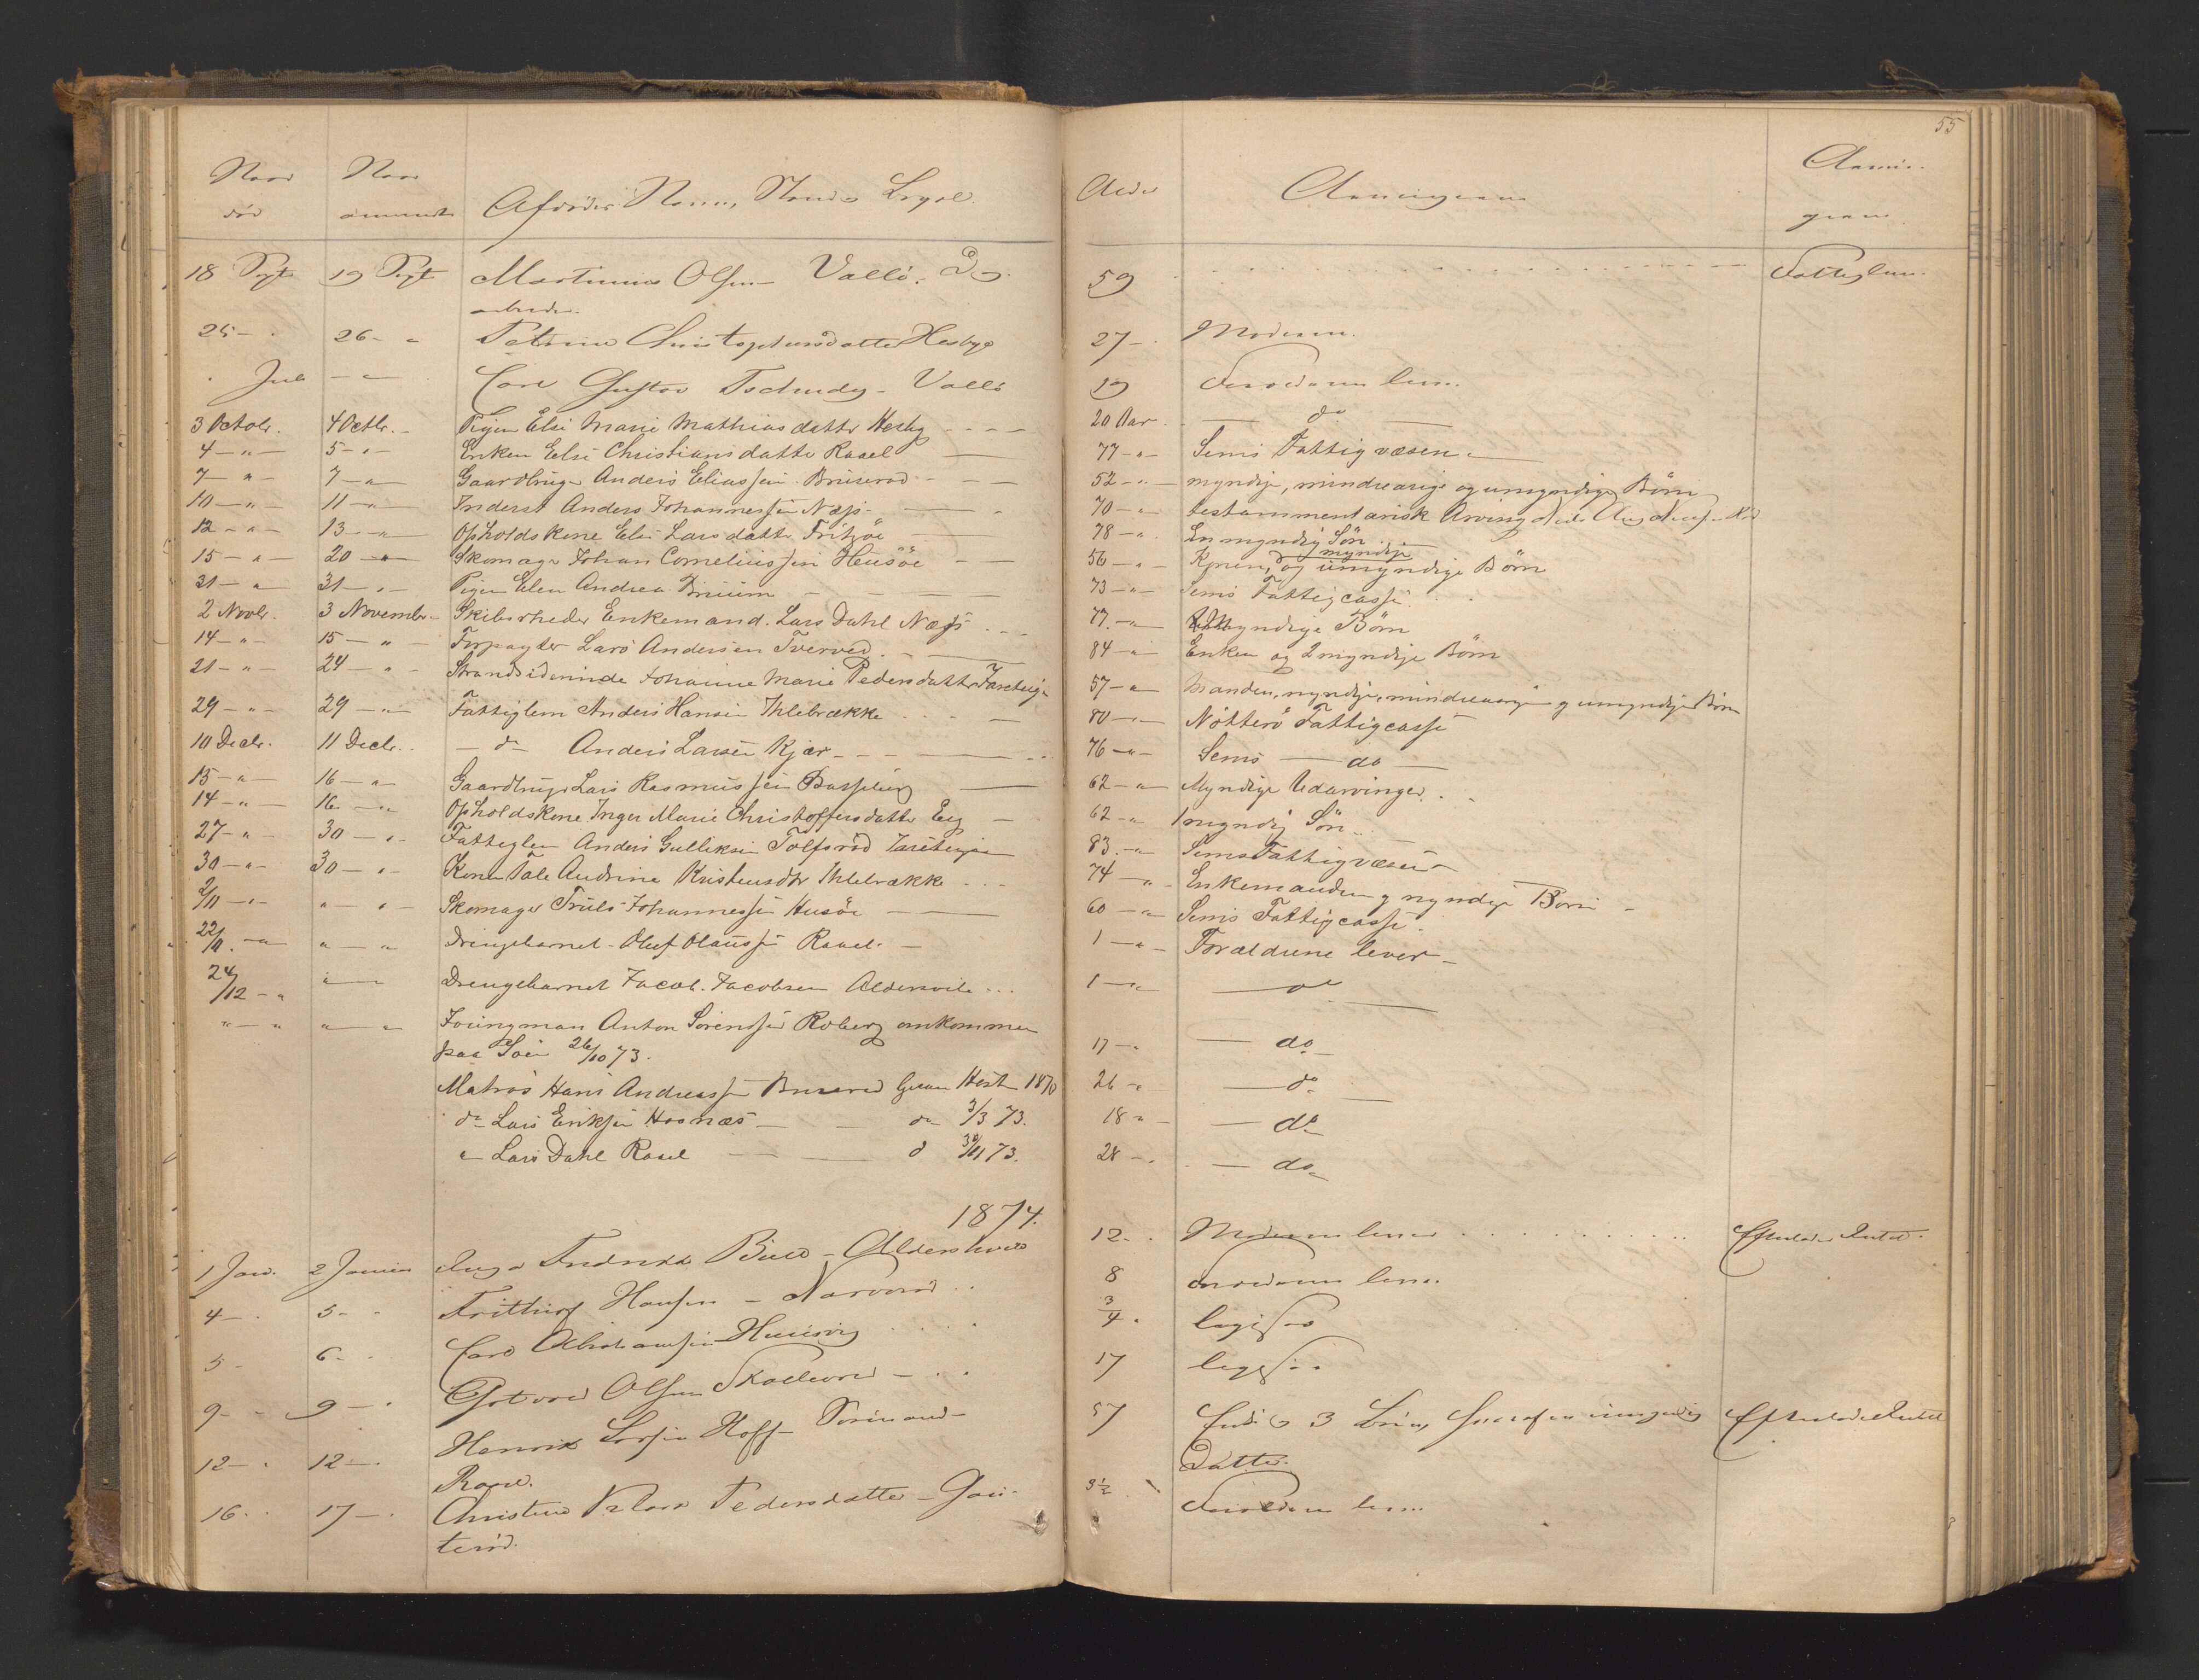 55
Naar død
Naar anmeldt
Afdødes Navn, Stand og
Alder
Arvingerne
18 Sept 19 Sept Martinus Olsen Vallö. Dag-
arbeider. 59 Fattiglem.
25 - 26 - Petrine Christophersdatter Hesby 27 - Moderen.
Juli - Carl Gustav Tschudy - Vallö 19 Forældrene lever.
3 Octobr. 4 Octbr. - Pigen Elsi Marie Mathiasdattr Hesby 20 Aar do
4 - " - 5 - " - Enken Elsi Christiansdatter Rael 77 - " - Sems Fattigvæsen
7 - " - 7 - " - Gaardbruger Anders Eliassen Bruserød 52 - " - myndige, mindreaarige og umyndige Börn
10 - " - 11 - " - Inderst Anders Johannessen Næss 70 - " - testammentarisk Arving
12 - " - 13 - " - Opholdskone Elsi Larsdatter Fritzöe 78 - " - En myndig Sön
15 - " - 20 - " - Skomager Johan Corneliussen Husöe 56 - " - Konen, og myndige og umyndige Börn
31 - " - 31 - " - Pigen Elen Andrea Bruun 73 - " - Sems Fattigcasse
2 Novbr. 3 Novembr. - Skibsrheder Enkemand. Lars Dahl Næss 77. - " - Myndige Börn
14 - " - 15 - " - Forpagter Lars Andersen Tverved 84 - " - Enken og 2 myndige Börn
21 - " - 24 - " - Strandsidderinde Johanne Marie Pedersdatter 57 - " - Manden, myndige, mindreaarige og umyndige Börn
29 - " - 29 - " - Fattiglem Anders Hansen Ihlebrække 80 - " - Nötterö Fattigcasse
10 Decbr. 11 Decbr. - do Anders Larsen Kjær 76 - " - Sems - do
15 - " - 16 - " - Gaardbruger Lars Rasmussen 62 - " - Myndige Udarvinger
14 - " - 16 - " - Opholdskone Inger Marie Christoffersdatter Eeg 62 - " - 1 myndig Sön
27 - " - 30 - " - Fattiglem Anders Gulliksen Tolfsröd 83. - " - Sems Fattigvæsen
30 - " - 30 - " - Konen Tale Andrine Kristensdtr Ihlebrække 74 - " - Enkemanden og myndige Börn
2/11 - " - " - " - Skomager Truls Johannessen Husöe 60 - " - Sems Fattigcasse
22/11. - " - " - " Drengebarnet Oluf Olaussen Rael 1 - " - Forældrene lever
24/12 - " - " - Drengebarnet Jacob Jacobsen 1 - " - do
" - " " - " Jounгman Anton Sörensen Roberg omkommen
paa Söen 26/10 73. 17 - " do
Matros Hans Andreassen Bruserød Höst 1870 26 - " do
do Lars Eriksen Hosnæs do 3/3 73. 18 - " do
" Lars Dahl Rael do 30/11 73. 28 - " do
1874.
1 Jan. 2 Januar 12 - Moderen lever Efterlader Intet.
4 - 5 - Frithiof Hansen - Narverød 8 Forældrene lever.
5 - 6 - Carl Abrahamsen Husvig 3/4 ligesaa
9 - 9 - Olsen Skallevold 17 ligesaa
12 - 12 - Henrik Hoff - Sörmand -
Rael. 57 Enke og 3 Börn, hvoraf en umyndig Efterlader Intet
Datter.
16 - 17 - Christine Klara Pedersdatter - Gau-
terød. 3½ Forældrene lever